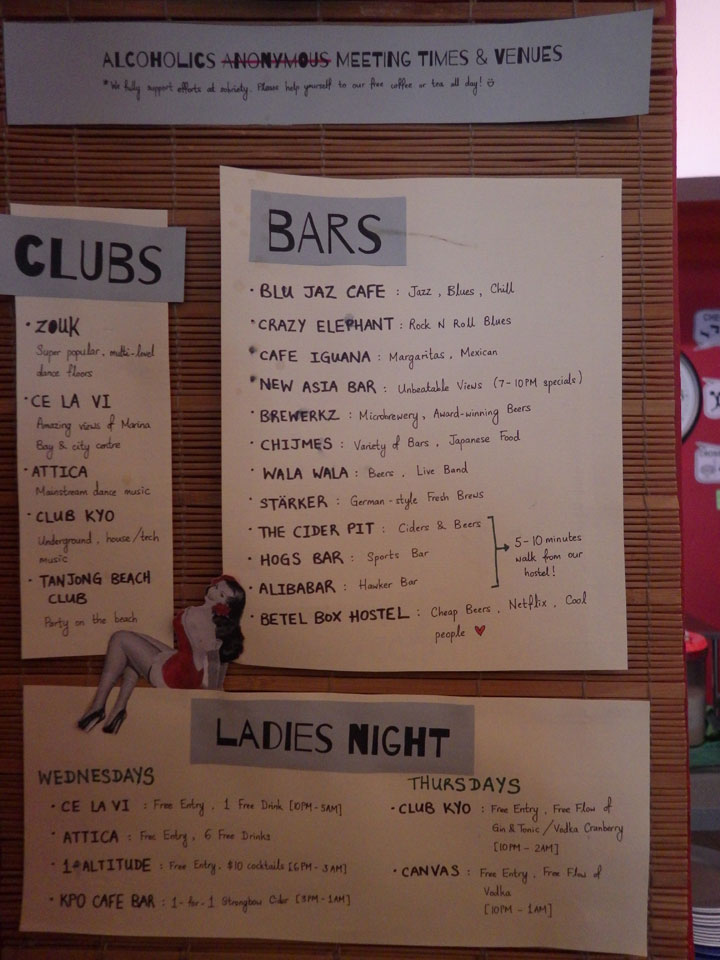 ALCOHOLICS ANONYMOUS MEETING TIMES & VENUES
*We fully support efforts at sobriety. Please help yourself to our free coffee or tea all day!
CLUBS
• ZOUK
Super popular, multi-level
dance floors
• CE LA VI
Amazing views of Marina
Bay & city centre
• ATTICA
Mainstream dance music
• CLUB KYO
Underground, house/tech
music
• TANJONG BEACH
CLUB
Party on the beach
BARS
• BLU JAZ CAFE : Jazz, Blues, Chill
• CRAZY ELEPHANT : Rock N Roll Blues
• CAFE IGUANA : Margaritas, Mexican
• NEW ASIA BAR : Unbeatable Views (7-10PM specials)
• BREWERKZ : Microbrewery, Award-winning Beers
• CHIJMES : Variety of Bars, Japanese Food
• WALA WALA : Beers, Live Band
• STÄRKER : German-style Fresh Brews
• THE CIDER PIT : Ciders & Beers
• HOGS BAR : Sports Bar
• ALIBABAR : Hawker Bar
5-10 minutes
walk from our
hostel!
• BETEL BOX HOSTEL : Cheap Beers, Netflix, Cool
people ♥
LADIES NIGHT
WEDNESDAYS
• CE LA VI : Free Entry, 1 Free Drink [10PM-3AM]
• ATTICA : Free Entry, 6 Free Drinks
• 1-ALTITUDE : Free Entry, $10 cocktails [6PM-3AM]
• KPO CAFE BAR : 1-for-1 Strongbow Cider [3PM-1AM]
THURSDAYS
• CLUB KYO : Free Entry, Free Flow of
Gin & Tonic / Vodka Cranberry
[10PM-2AM]
• CANVAS : Free Entry, Free Flow of
Vodka
[10PM-1AM]